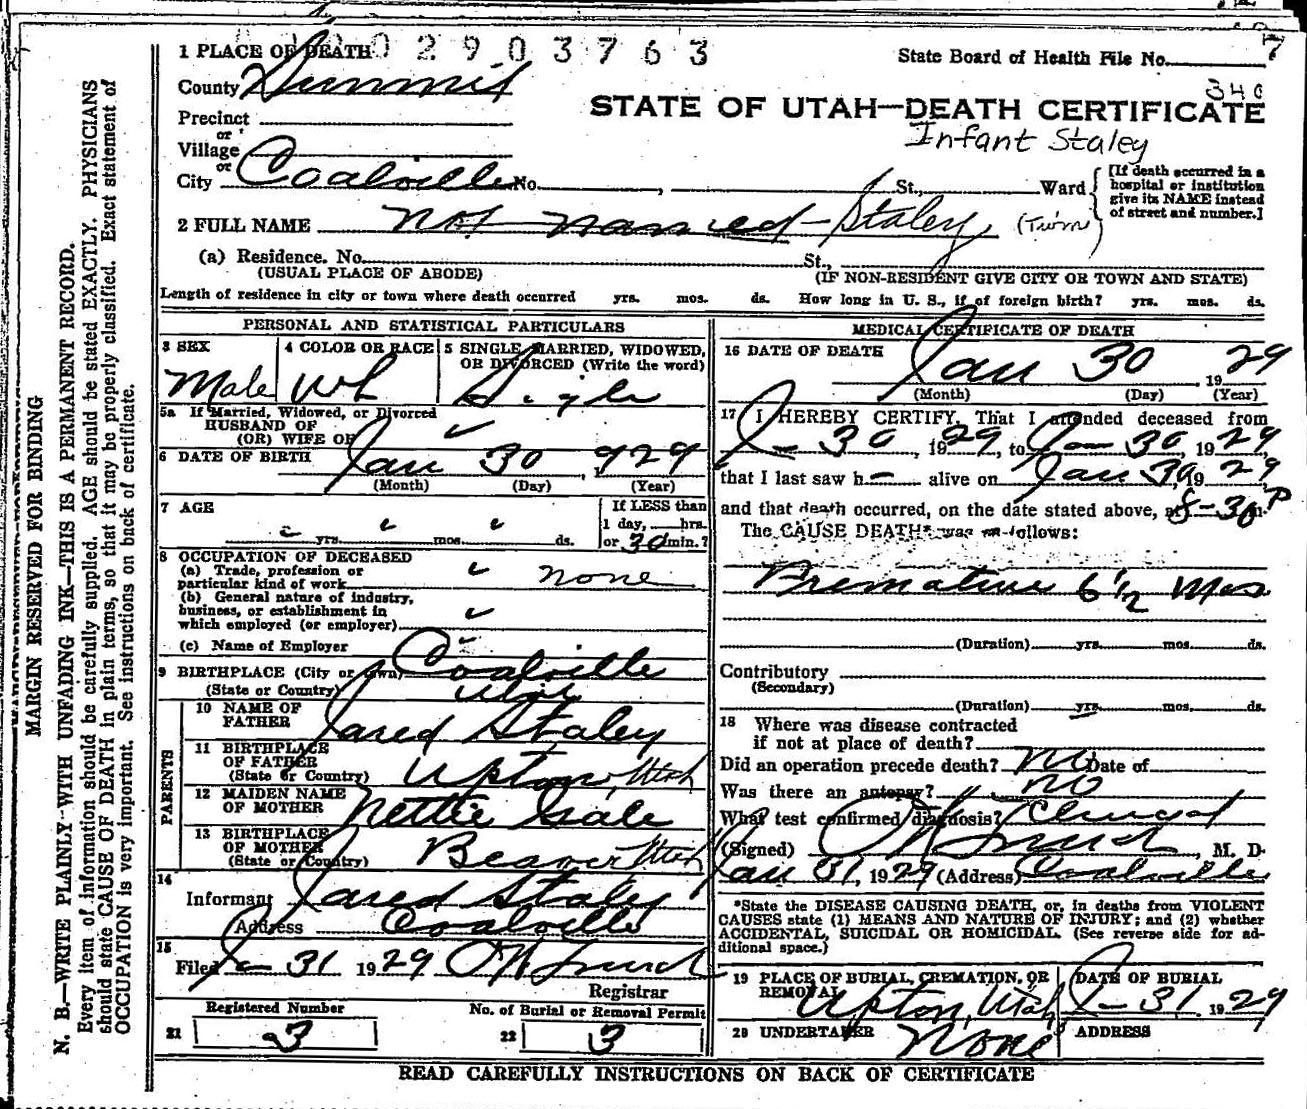 MARGIN RESERVED FOR BINDING
N. B.—WRITE PLAINLY—WITH UNFADING INK—THIS IS A PERMANENT RECORD.
Every item of information should be carefully supplied. AGE should be stated EXACTLY. PHYSICIANS
should state CAUSE OF DEATH in plain terms, so that it may be properly classified. Exact statement of
OCCUPATION is very important. See instructions on back of certificate.
1 PLACE OF DEATH 0 2 9 0 3 7 6 3
State Board of Health File No. 7
County Summit
340
STATE OF UTAH—DEATH CERTIFICATE
Precinct
or
Infant Staley
Village
or
City Coalville No. , St., Ward
[If death occurred in a
hospital or institution
give its NAME instead
of street and number.]
2 FULL NAME Not named Staley (Twin)
(a) Residence. No. St.,
(USUAL PLACE OF ABODE) (IF NON-RESIDENT GIVE CITY OR TOWN AND STATE)
Length of residence in city or town where death occurred yrs. mos. ds. How long in U. S., if of foreign birth? yrs. mos. ds.
PERSONAL AND STATISTICAL PARTICULARS
3 SEX 4 COLOR OR RACE 5 SINGLE, MARRIED, WIDOWED,
OR DIVORCED (Write the word)
Male Wh Single
5a If Married, Widowed, or Divorced
HUSBAND OF
(OR) WIFE OF
6 DATE OF BIRTH Jan 30 , 1929
(Month) (Day) (Year)
7 AGE If LESS than
1 day, hrs.
yrs. mos. ds. or 30 min.?
8 OCCUPATION OF DECEASED
(a) Trade, profession or
particular kind of work none
(b) General nature of industry,
business, or establishment in
which employed (or employer)
(c) Name of Employer
9 BIRTHPLACE (City or town) Coalville
(State or Country) Utah
PARENTS
10 NAME OF
FATHER Jared Staley
11 BIRTHPLACE
OF FATHER
(State or Country) Upton, Utah
12 MAIDEN NAME
OF MOTHER Nettie Gale
13 BIRTHPLACE
OF MOTHER
(State or Country) Beaver Utah
14
Informant Jared Staley
Address Coalville
15
Filed Ja— 31 1929
Registrar
Registered Number No. of Burial or Removal Permit
21 3 22 3
MEDICAL CERTIFICATE OF DEATH
16 DATE OF DEATH Jan 30 , 1929
(Month) (Day) (Year)
17 I HEREBY CERTIFY, That I attended deceased from
J— 30, 1929, to Ja— 30, 1929,
that I last saw h— alive on Jan 30, 1929
and that death occurred, on the date stated above, at 8-30 P m.
The CAUSE DEATH* was as follows:
Premature 6 1/2 Mos
(Duration) yrs. mos. ds.
Contributory
(Secondary)
(Duration) yrs. mos. ds.
18 Where was disease contracted
if not at place of death?
Did an operation precede death? No Date of
Was there an autopsy? no
What test confirmed diagnosis? Clinical
(Signed) , M. D.
Jan 31, 1929 (Address) Coalville
*State the DISEASE CAUSING DEATH, or, in deaths from VIOLENT
CAUSES state (1) MEANS AND NATURE OF INJURY; and (2) whether
ACCIDENTAL, SUICIDAL OR HOMICIDAL. (See reverse side for ad-
ditional space.)
19 PLACE OF BURIAL, CREMATION, OR DATE OF BURIAL
REMOVAL Upton, Utah J— 31, 1929
20 UNDERTAKER None ADDRESS
READ CAREFULLY INSTRUCTIONS ON BACK OF CERTIFICATE